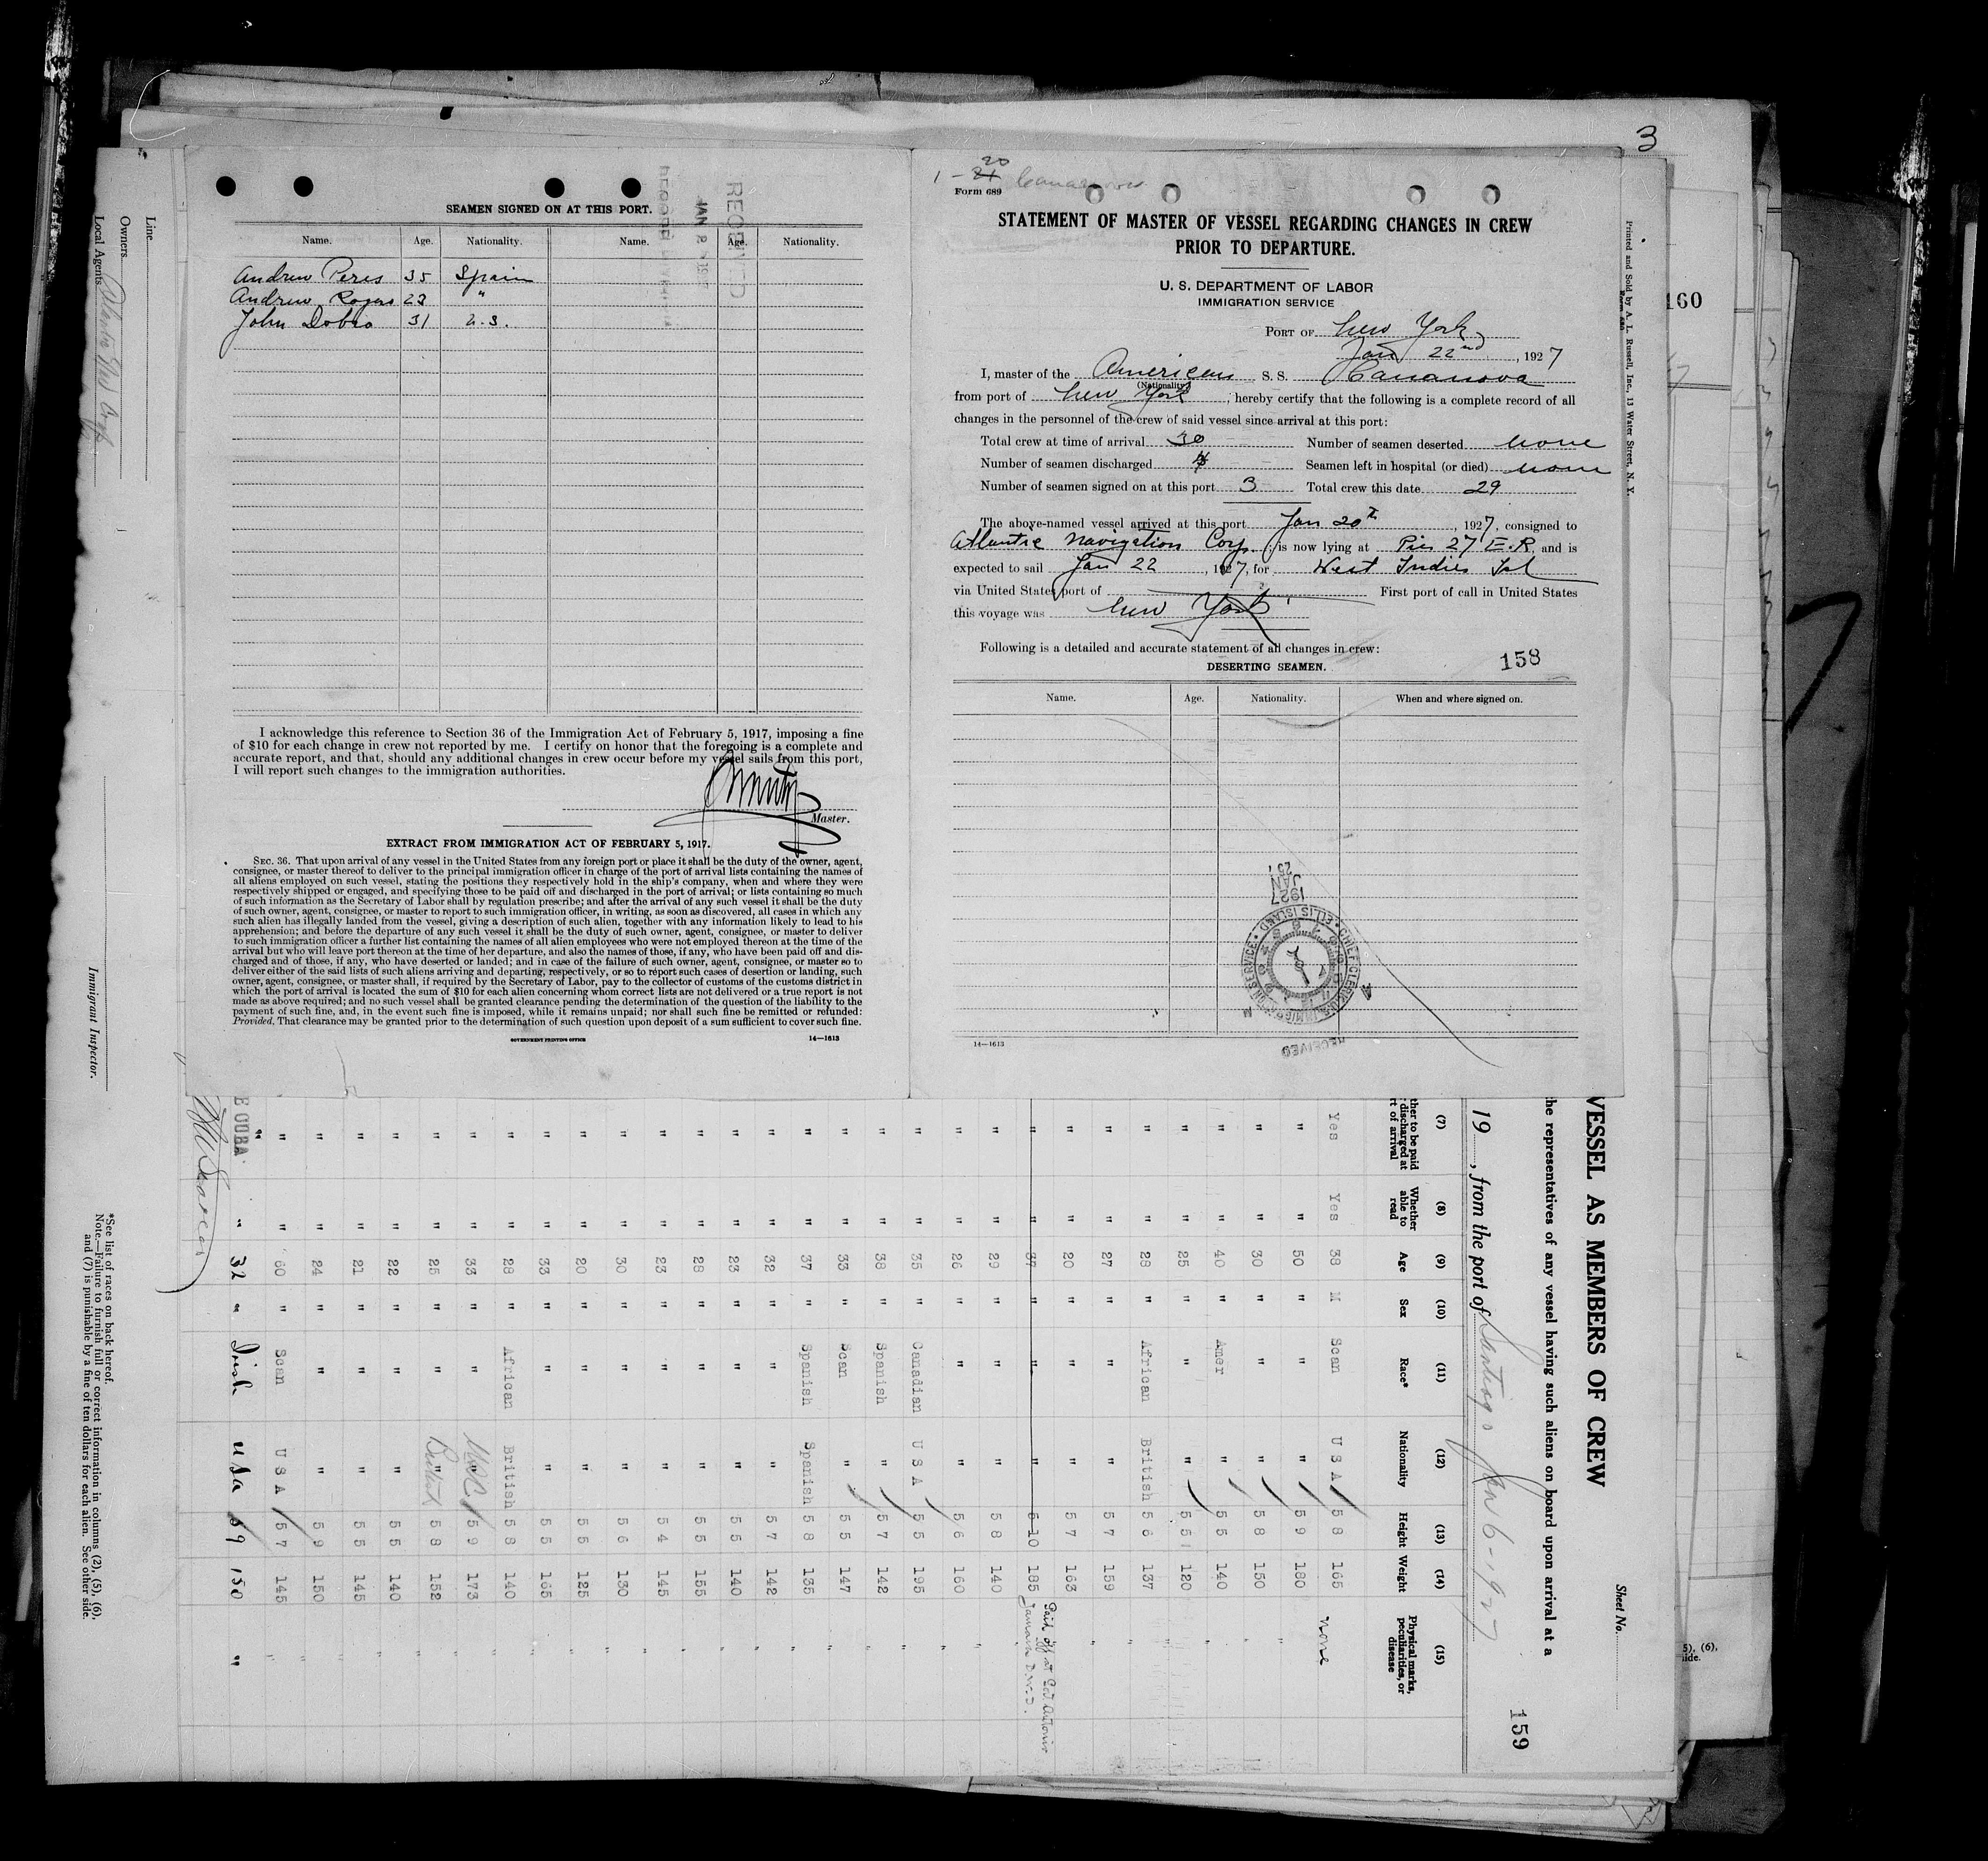 3
SEAMEN SIGNED ON AT THIS PORT.
RECEIVED
Name. Age. Nationality. Name. Age. Nationality.
Andrew Peres 35 Spain
Andrew Rogers 23 "
John Dobro 31 U.S.
I acknowledge this reference to Section 36 of the Immigration Act of February 5, 1917, imposing a fine
of $10 for each change in crew not reported by me. I certify on honor that the foregoing is a complete and
accurate report, and that, should any additional changes in crew occur before my vessel sails from this port,
I will report such changes to the immigration authorities.
Master.
EXTRACT FROM IMMIGRATION ACT OF FEBRUARY 5, 1917.
SEC. 36. That upon arrival of any vessel in the United States from any foreign port or place it shall be the duty of the owner, agent,
consignee, or master thereof to deliver to the principal immigration officer in charge of the port of arrival lists containing the names of
all aliens employed on such vessel, stating the positions they respectively hold in the ship's company, when and where they were
respectively shipped or engaged, and specifying those to be paid off and discharged in the port of arrival; or lists containing so much
of such information as the Secretary of Labor shall by regulation prescribe; and after the arrival of any such vessel it shall be the duty
of such owner, agent, consignee, or master to report to such immigration officer, in writing, as soon as discovered, all cases in which any
such alien has illegally landed from the vessel, giving a description of such alien, together with any information likely to lead to his
apprehension; and before the departure of any such vessel it shall be the duty of such owner, agent, consignee, or master to deliver
to such immigration officer a further list containing the names of all alien employees who were not employed thereon at the time of the
arrival but who will leave port thereon at the time of her departure, and also the names of those, if any, who have been paid off and dis-
charged and of those, if any, who have deserted or landed; and in case of the failure of such owner, agent, consignee, or master so to
deliver either of the said lists of such aliens arriving and departing, respectively, or so to report such cases of desertion or landing, such
owner, agent, consignee, or master shall, if required by the Secretary of Labor, pay to the collector of customs of the customs district in
which the port of arrival is located the sum of $10 for each alien concerning whom correct lists are not delivered or a true report is not
made as above required; and no such vessel shall be granted clearance pending the determination of the question of the liability to the
payment of such fine, and, in the event such fine is imposed, while it remains unpaid; nor shall such fine be remitted or refunded:
Provided, That clearance may be granted prior to the determination of such question upon deposit of a sum sufficient to cover such fine.
GOVERNMENT PRINTING OFFICE 14—1613
1 - 21 20
Form 689
STATEMENT OF MASTER OF VESSEL REGARDING CHANGES IN CREW
PRIOR TO DEPARTURE.
U. S. DEPARTMENT OF LABOR
IMMIGRATION SERVICE
PORT OF New York
Jan 22nd, 1927
I, master of the American S. S. Casanova
(Nationality)
from port of New York, hereby certify that the following is a complete record of all
changes in the personnel of the crew of said vessel since arrival at this port:
Total crew at time of arrival 30 Number of seamen deserted none
Number of seamen discharged 4 Seamen left in hospital (or died) none
Number of seamen signed on at this port 3 Total crew this date 29
The above-named vessel arrived at this port Jan 20th, 1927, consigned to
Atlantic Navigation Corp.; is now lying at Pier 27 E.R. and is
expected to sail Jan 22, 1927, for West Indies Isl
via United States port of First port of call in United States
this voyage was New York
Following is a detailed and accurate statement of all changes in crew:
158
DESERTING SEAMEN.
Name. Age. Nationality. When and where signed on.
1927 JAN 25
CHIEF CLERK U.S. IMMIGRATION SERVICE • ELLIS ISLAND
RECEIVED
14—1613
Printed and Sold by A. L. Russell, Inc., 13 Water Street, N. Y.
160
Line
Owners
Local Agents Atlantic Nav Corp
Immigrant Inspector.
Sheet No.
VESSEL AS MEMBERS OF CREW
he representatives of any vessel having such aliens on board upon arrival at a
19 , from the port of Santiago Jan 16-1927
159
(7) (8) (9) (10) (11) (12) (13) (14) (15)
ther to be paid discharged at rt of arrival Whether able to read Age Sex Race* Nationality Height Weight Physical marks, peculiarities, or disease
Yes Yes 38 M Scan U S A 5 8 165 none
" " 50 " " " 5 9 180 "
" " 30 " " " 5 8 150 "
" " 40 " Amer " 5 5 140 "
" " 25 " " " 5 5 120 "
" " 28 " African British 5 6 137 "
" " 27 " " " 5 7 159 "
" " 20 " " " 5 7 163
" " 37 " " " 5 10 185 Paid off at Port Antonio Jamaica B.W.I.
" " 29 " " " 5 8 140 "
" " 26 " " " 5 6 160 "
" " 35 " Canadian U S A 5 5 195 "
" " 38 " Spanish " 5 7 142 "
" " 33 " Scan " 5 5 147 "
" " 37 " Spanish Spanish 5 8 135 "
" " 32 " " " 5 7 142 "
" " 23 " " " 5 5 140 "
" " 28 " " " 5 5 155 "
" " 23 " " " 5 4 145 "
" " 30 " " " 5 6 130 "
" " 20 " " " 5 5 125 "
" " 33 " " " 5 5 165 "
" " 28 " African British 5 8 140 "
" " 33 " " " 5 9 173 "
" " 25 " " " British 5 8 152 "
" " 22 " " " 5 5 140 "
" " 21 " " " 5 5 145 "
" " 24 " " " 5 9 150 "
" " 60 " Scan U S A 5 7 145 "
" " 32 " Irish USA 5 9 150 "
E CUBA
*See list of races on back hereof.
Note.—Failure to furnish full or correct information in columns (2), (5), (6),
and (7) is punishable by a fine of ten dollars for each alien. See other side.
5), (6),
side.